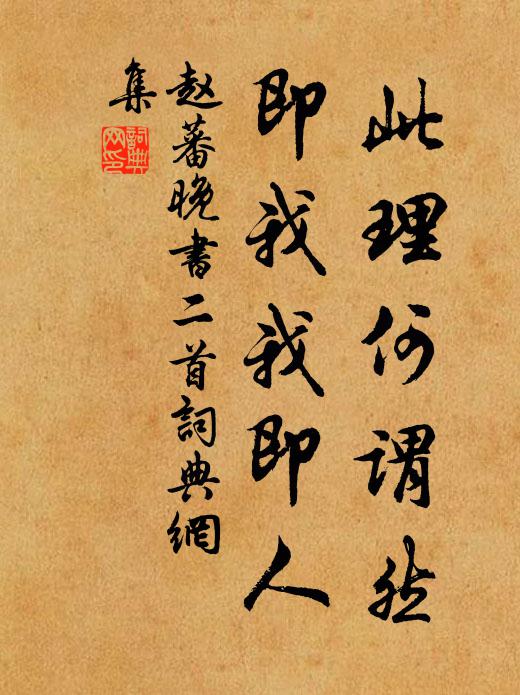 此理何谓然
即我我即人
赵蕃晚书二首词典網
集
詞典网印